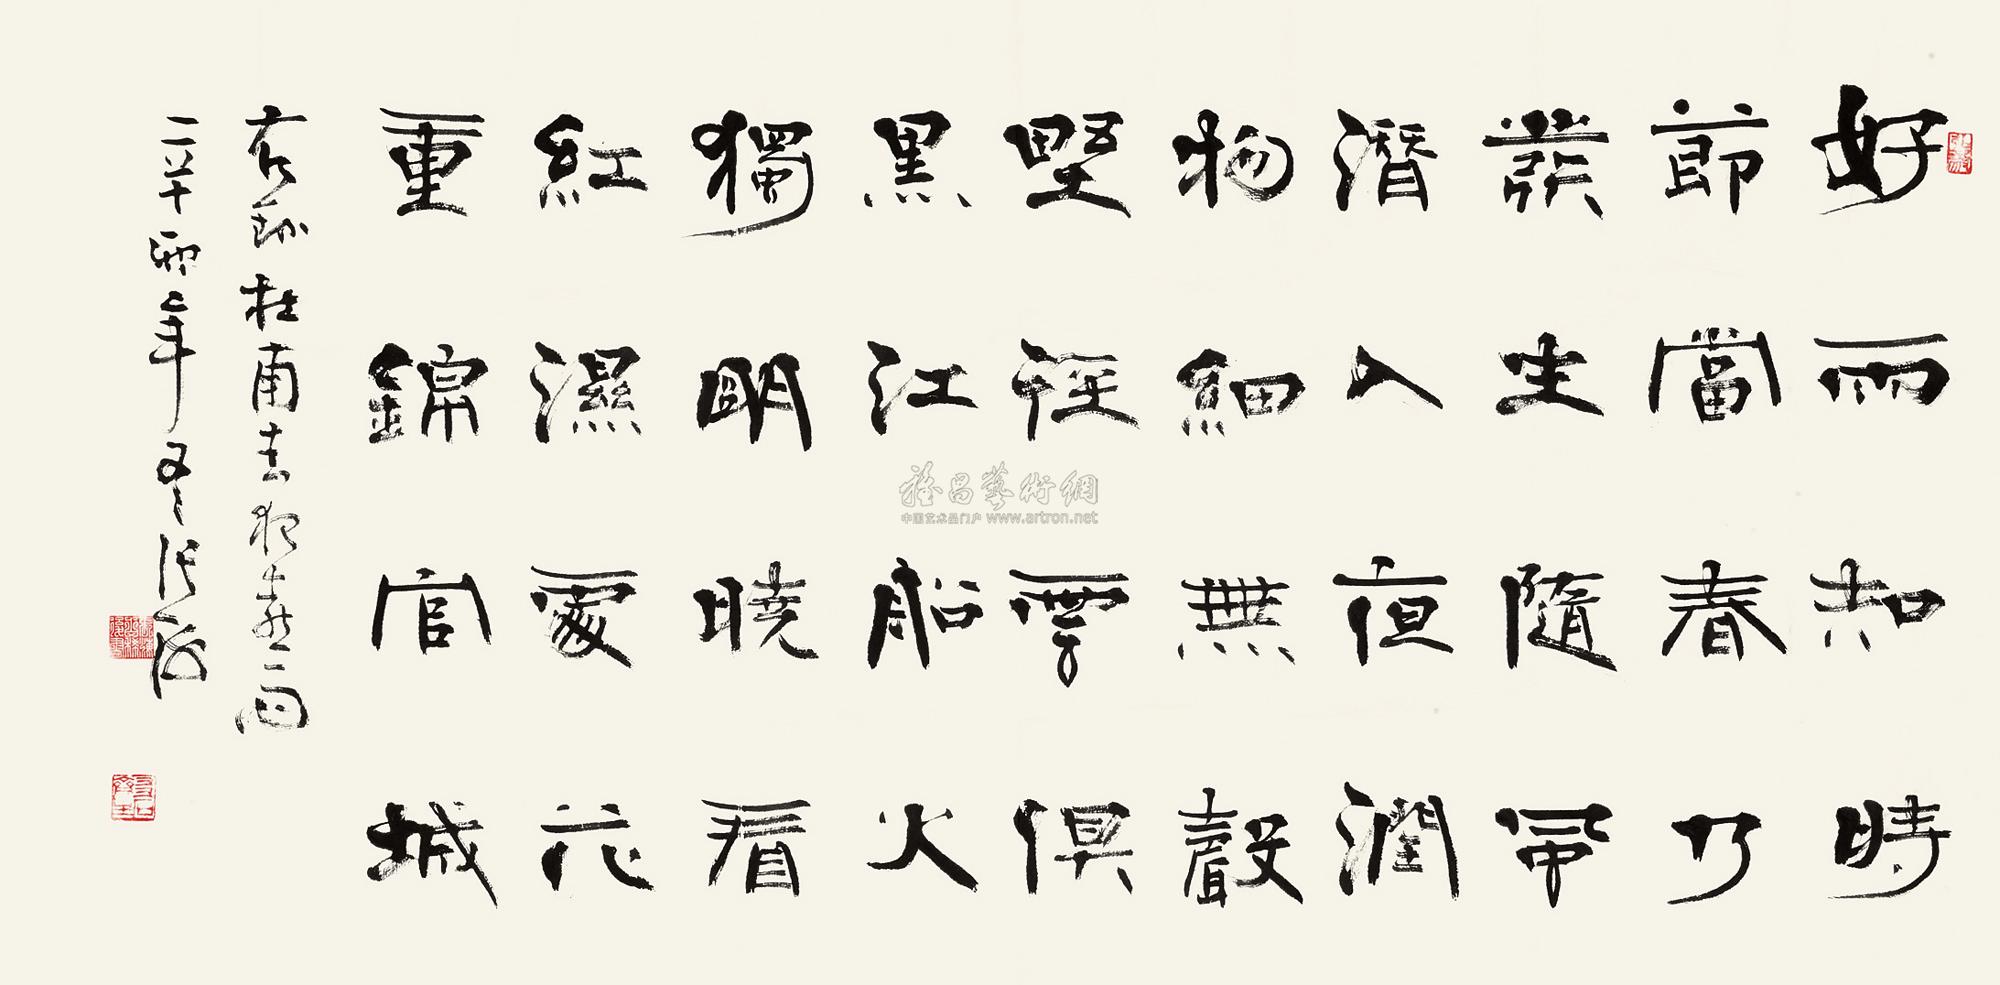 好雨知時
節當春乃
發生隨風
潛入夜潤
物細無聲
野徑雲俱
黑江船火
獨明曉看
紅濕處花
重錦官城
右録杜甫春夜喜雨
辛卯年 張海
雅昌藝術網
中国艺术品门户 www.artron.net